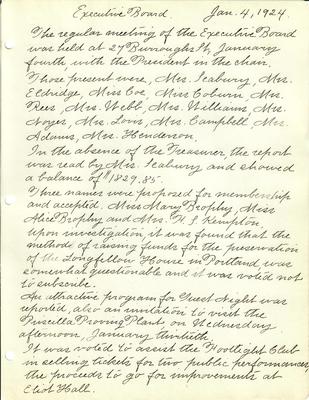 Executive Board Jan. 4, 1924.
The regular meeting of the Executive Board
was held at 27 Burroughs St, January
fourth, with the President in the chair.
Those present were, Mrs. Seabury, Mrs.
Eldridge, Miss Coe, Miss Coburn, Mrs.
Rees, Mrs. Webb, Mrs. Williams, Mrs.
Noyes, Mrs. Campbell, Mrs.
Adams, Mrs. Henderson
In the absence of the Treasurer, the report
was read by Mrs. Seabury and showed
a balance of $1829.85.
Three names were proposed for membership
and accepted. Miss Mary Brophy, Miss
Alice Brophy and Mrs. Kempton.
Upon investigation, it was found that the
methods of raising funds for the preservation
of the Longfellow House in Portland, was
somewhat questionable and it was voted not
to subscribe.
An attractive program for Guest Night was
reported, also an invitation to visit the
Priscilla Proving Plant, on Wednesday
afternoon, January thirtieth.
It was voted to assist the Footlight Club
in selling tickets for two public performances,
the proceeds to go for improvements at
Eliot Hall.